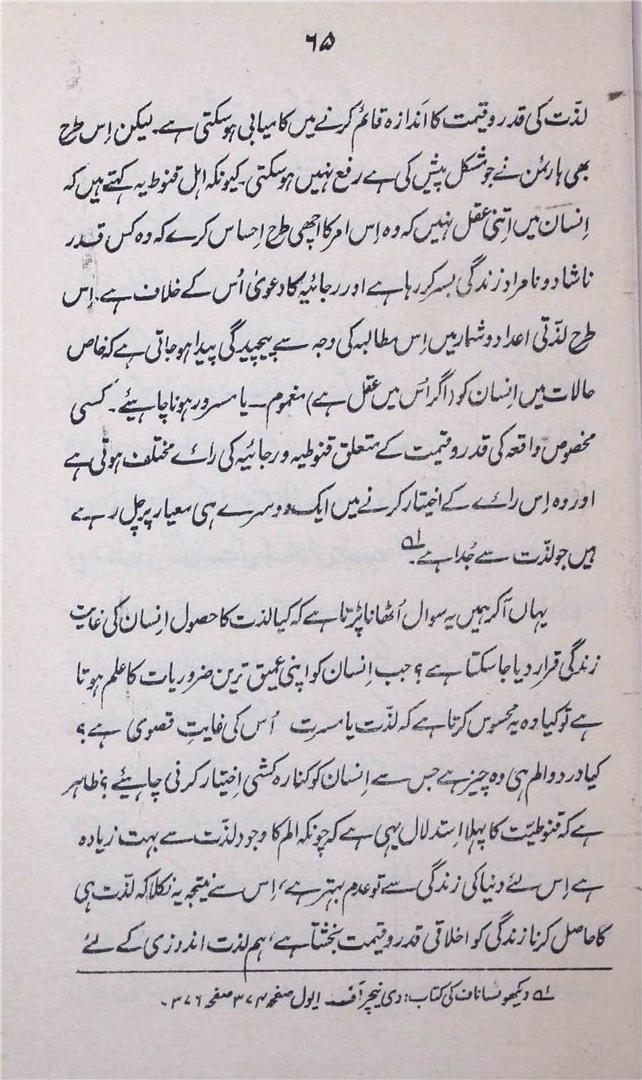 ۶۵
لذّت کی قدر و قیمت کا اندازہ قائم کرنے میں کامیابی ہوسکتی ہے۔ لیکن اِس طرح
بھی ہارٹمن نے جو مشکل پیش کی ہے رفع نہیں ہوسکتی۔ کیونکہ اہل قنوطیہ یہ کہتے ہیں کہ
اِنسان میں اِتنی عقل نہیں کہ وہ اِس امر کا اچھی طرح اِحساس کرے کہ وہ کس قدر
ناشاد و نامراد زندگی بسر کر رہا ہے اور رجائیہ کا دعویٰ اُس کے خلاف ہے۔ اِس
طرح لذّتی اعداد و شمار میں اِس مطالبہ کی وجہ سے پیچیدگی پیدا ہوجاتی ہے کہ خاص
حالات میں اِنسان کو (اگر اُس میں عقل ہے) مغموم۔ یا مسرور ہونا چاہیئے۔ کسی
مخصوص واقعہ کی قدر و قیمت کے متعلق قنوطیہ و رجائیہ کی رائے مختلف ہوتی ہے
اور وہ اِس رائے کے اختیار کرنے میں ایک دوسرے ہی معیار پر چل رہے
ہیں جو لذّت سے جُدا ہے۔ ؎۱
یہاں آکر ہمیں یہ سوال اُٹھانا پڑتا ہے کہ کیا لذت کا حصول اِنسان کی غایتِ
زندگی قرار دیا جاسکتا ہے؟ جب اِنسان کو اپنی عمیق ترین ضروریات کا علم ہوتا
ہے تو کیا وہ یہ محسوس کرتا ہے کہ لذّت یا مسرت اُس کی غایتِ قصویٰ ہے؟
کیا درد و الم ہی وہ چیز ہے جس سے اِنسان کو کنارہ کشی اِختیار کرنی چاہیئے؟ ظاہر
ہے کہ قنوطیّت کا پہلا استدلال یہی ہے کہ چونکہ الم کا وجود لذّت سے بہت زیادہ
ہے اِس لئے دنیا کی زندگی سے تو عدم بہتر ہے، اِس سے نتیجہ یہ نکلا کہ لذّت ہی
کا حاصل کرنا زندگی کو اخلاقی قدر و قیمت بخشتا ہے، ہم لذت اندوزی کے لئے
؎۱ دیکھو تساناف کی کتاب: دی نیچر آف ایول صفحہ ۳۷۴ صفحہ ۳۷۶۔